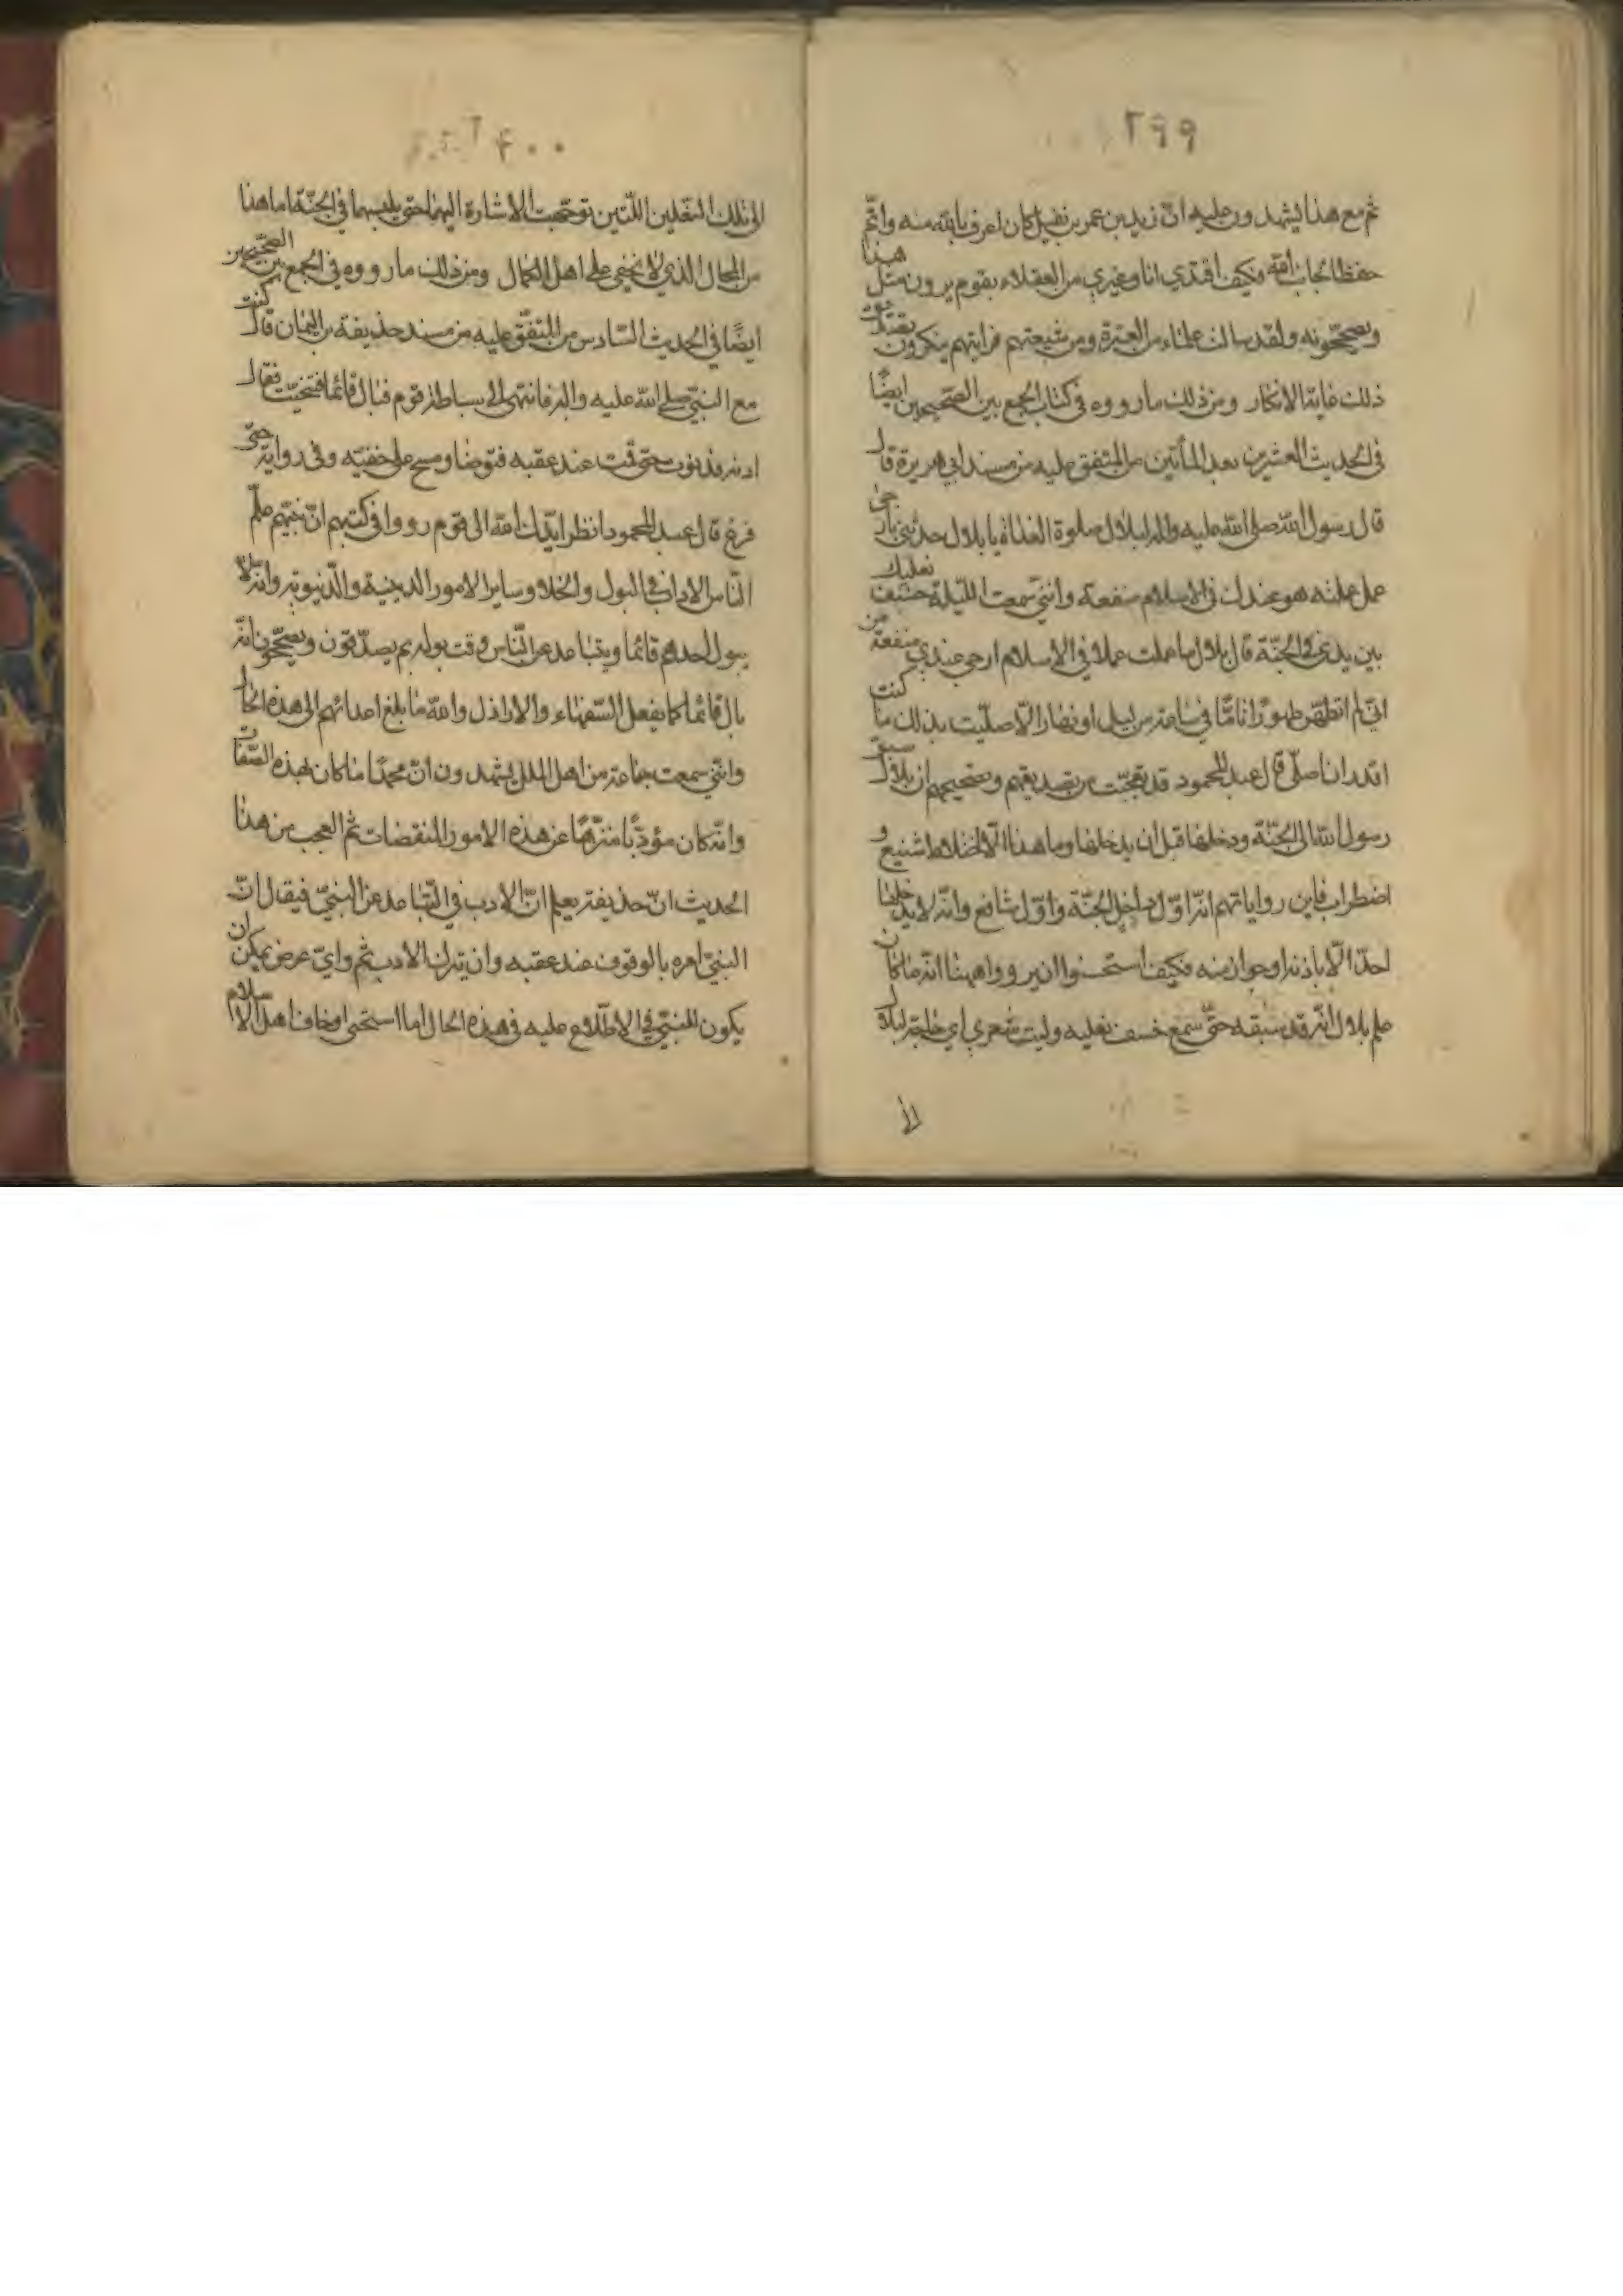 ٢٩٩
ثم مع هذا يشهدون عليه انّ زيد بن عمر بن نفيل كان اعرف بالله منه واتمّ
حفظا لجانب الله فكيف اقتدي انا وغيري من العقلاء بقوم يروون مثل هذا
ويصحّحونه ولقد سالت علماء من العترة ومن شيعتهم فرايتهم ينكرون تصديق
ذلك غاية الانكار ومن ذلك ما رووه في كتاب الجمع بين الصحيحين ايضًا
في الحديث العشرين بعد المأتين من المتفق عليه من مسند ابي هريرة قال
قال رسول الله صلى الله عليه واله لبلال صلوة الغداة يا بلال حدثني بارجى
عمل عملته هو عندك في الاسلام منفعة وانّي سمعت الليلة خشف نعليك
بين يدي في الجنّة قال بلال ما عملت عملا في الاسلام ارجى عندي منفعة من
انّي لم اتطهّر طهورًا تامًّا في ساعة من ليل او نهار الّا صلّيت بذلك ما كنت
اقدر ان اصلّي قال عبد المحمود قد تعجّبت من تصديقهم وتصحيحهم ان بلالا سبق
رسول الله الى الجنّة ودخلها قبل ان يدخلها وما هذا الّا اختلاط شنيع و
اضطراب فاين رواياتهم انّه اوّل داخل الجنّة واوّل شافع وانّه لا يدخلها
احدٌ الّا باذنه او جواز منه فكيف استحسنوا ان يرووا هيهنا انّه ما كان
علم بلال انّه قد سبقه حتّى سمع خسف نعليه وليت شعري اي حاجة لبلال
الى
٤٠٠
الى تلك النعلين اللّتين توجّهت الاشارة اليهما حتى يلبسهما في الجنّة اما هذا
من المحال الذي لا يخفى على اهل الكمال ومن ذلك ما رووه في الجمع بين الصحيحين
ايضًا في الحديث السّادس من المتّفق عليه من مسند حذيفة بن اليمان قال كنت
مع النبيّ صلى الله عليه واله فانتهى الى سباطة قوم فبال قائما فتنحّيت فقال
ادنه فدنوت حتى قمت عند عقبه فتوضا ومسح على خفّيه وفي رواية حتى
فرغ قال عبد المحمود انظر ايّدك الله الى قوم رووا في كتبهم انّ نبيّهم علّم
النّاس الاداب في البول والخلا وساير الامور الدينية والدّنيويّة وانّه لا
يبول احدهم قائما ويتباعد عن النّاس وقت بوله ثم يصدّقون ويصحّحون انّه
بال قائما كما يفعل السّفهاء والاراذل والله ما بلغ اعدائهم الى هذه الحال
وانّني سمعت جماعة من اهل الملل يشهدون انّ محمدًا ما كان بهذه الصّفات
وانّه كان مؤدّبًا منزّهًا عن هذه الامور المنقصات ثم العجب من هذا
الحديث انّ حذيفة يعلم انّ الادب في التّباعد عن النبيّ فيقال انّ
النبيّ امره بالوقوف عند عقبه وان يترك الادب ثم وايّ غرض يمكن ان
يكون للنبيّ في الاطّلاع عليه في هذه الحال اما استحى او خاف اهل الاسلام